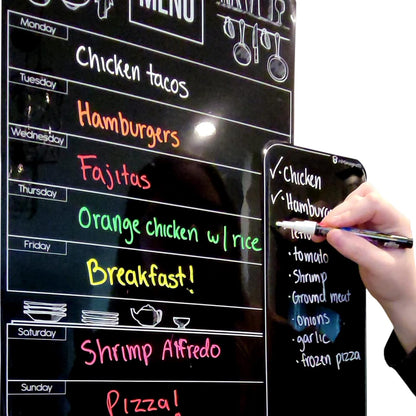 MENU
Monday
Chicken tacos
Tuesday
Hamburgers
Wednesday
Fajitas
Thursday
Orange chicken w/ rice
Friday
Breakfast!
Saturday
Shrimp Alfredo
Sunday
Pizza!
✓ Chicken
✓ Hamburge
· tomato
· Shrimp
· Ground meat
· onions
· garlic
· frozen pizza